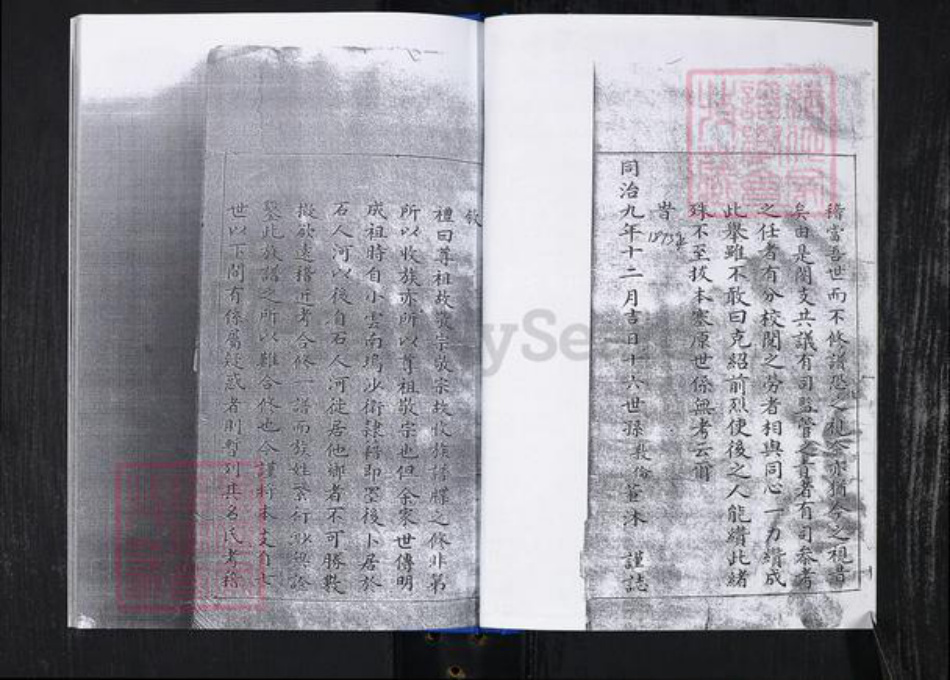 稽當吾世而不修譜恐後之視今亦猶今之視昔
矣由是閤支共議有司監管之責者有司參考
之任者有分校閱之勞者相與同心一力纘成
此舉雖不敢曰克紹前烈使後之人能纘此緒
殊不至拔本塞原世係無考云爾
昔
同治九年十二月吉日十六世孫 俗薰沐 謹誌
敘
禮曰尊祖故敬宗敬宗故收族譜牒之修非第
所以收族亦所以尊祖敬宗也但余家世傳明
成祖時自小雲南烏沙衛隸籍即墨後卜居於
石人河以後自石人河徙居他鄉者不可勝數
擬欲遠稽近考合修一譜而族姓繁衍
鑿此族譜之所以難合修也今謹將本支自七
世以下間有係屬疑惑者則暫列其名氏考稽
MySe